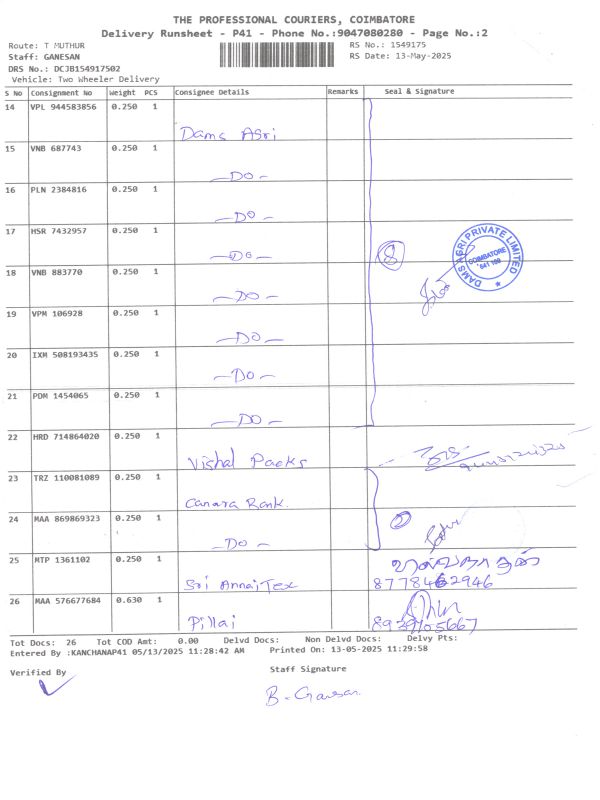 THE PROFESSIONAL COURIERS, COIMBATORE
Delivery Runsheet - P41 - Phone No.:9047080280 - Page No.:2
Route: T MUTHUR RS No.: 1549175
Staff: GANESAN RS Date: 13-May-2025
DRS No.: DCJB154917502
Vehicle: Two Wheeler Delivery
S No Consignment No Weight PCS Consignee Details Remarks Seal & Signature
14 VPL 944583856 0.250 1
Dams Agri
15 VNB 687743 0.250 1
-DO-
16 PLN 2384816 0.250 1
-DO-
17 HSR 7432957 0.250 1
-DO- 8
DAMS AGRI PRIVATE LIMITED
COIMBATORE
641 109
18 VNB 883770 0.250 1
-DO-
19 VPM 106928 0.250 1
-DO-
20 IXM 508193435 0.250 1
-DO-
21 PDM 1454065 0.250 1
-DO-
22 HRD 714864020 0.250 1
Vishal Packs
23 TRZ 110081089 0.250 1
Canara Bank.
24 MAA 869869323 0.250 1
-DO- 2
25 MTP 1361102 0.250 1
Sri Annai Tex 8778462946
26 MAA 576677684 0.630 1
Pillai 8939105667
Tot Docs: 26 Tot COD Amt: 0.00 Delvd Docs: Non Delvd Docs: Delvy Pts:
Entered By :KANCHANAP41 05/13/2025 11:28:42 AM Printed On: 13-05-2025 11:29:58
Verified By Staff Signature
B. Ganesan